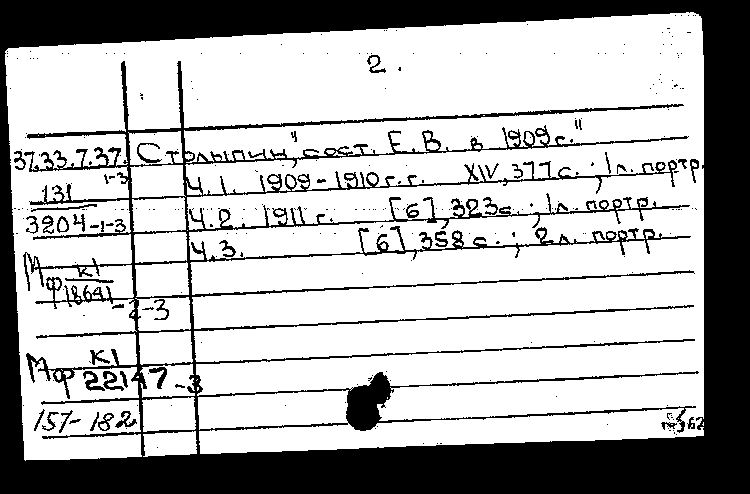 2.
37.33.7.37. Столыпин," сост. Е. В. в 1909 г."
131 1-3 Ч. 1. 1909-1910 г.г. XIV, 377 с. ; 1 л. портр.
3204-1-3 Ч. 2. 1911 г. [6], 323 с. ; 1 л. портр.
Ч. 3. [6], 358 с. ; 2 л. портр.
Мф К1
18641 -2-3
Мф К1
22147 -3
157-182